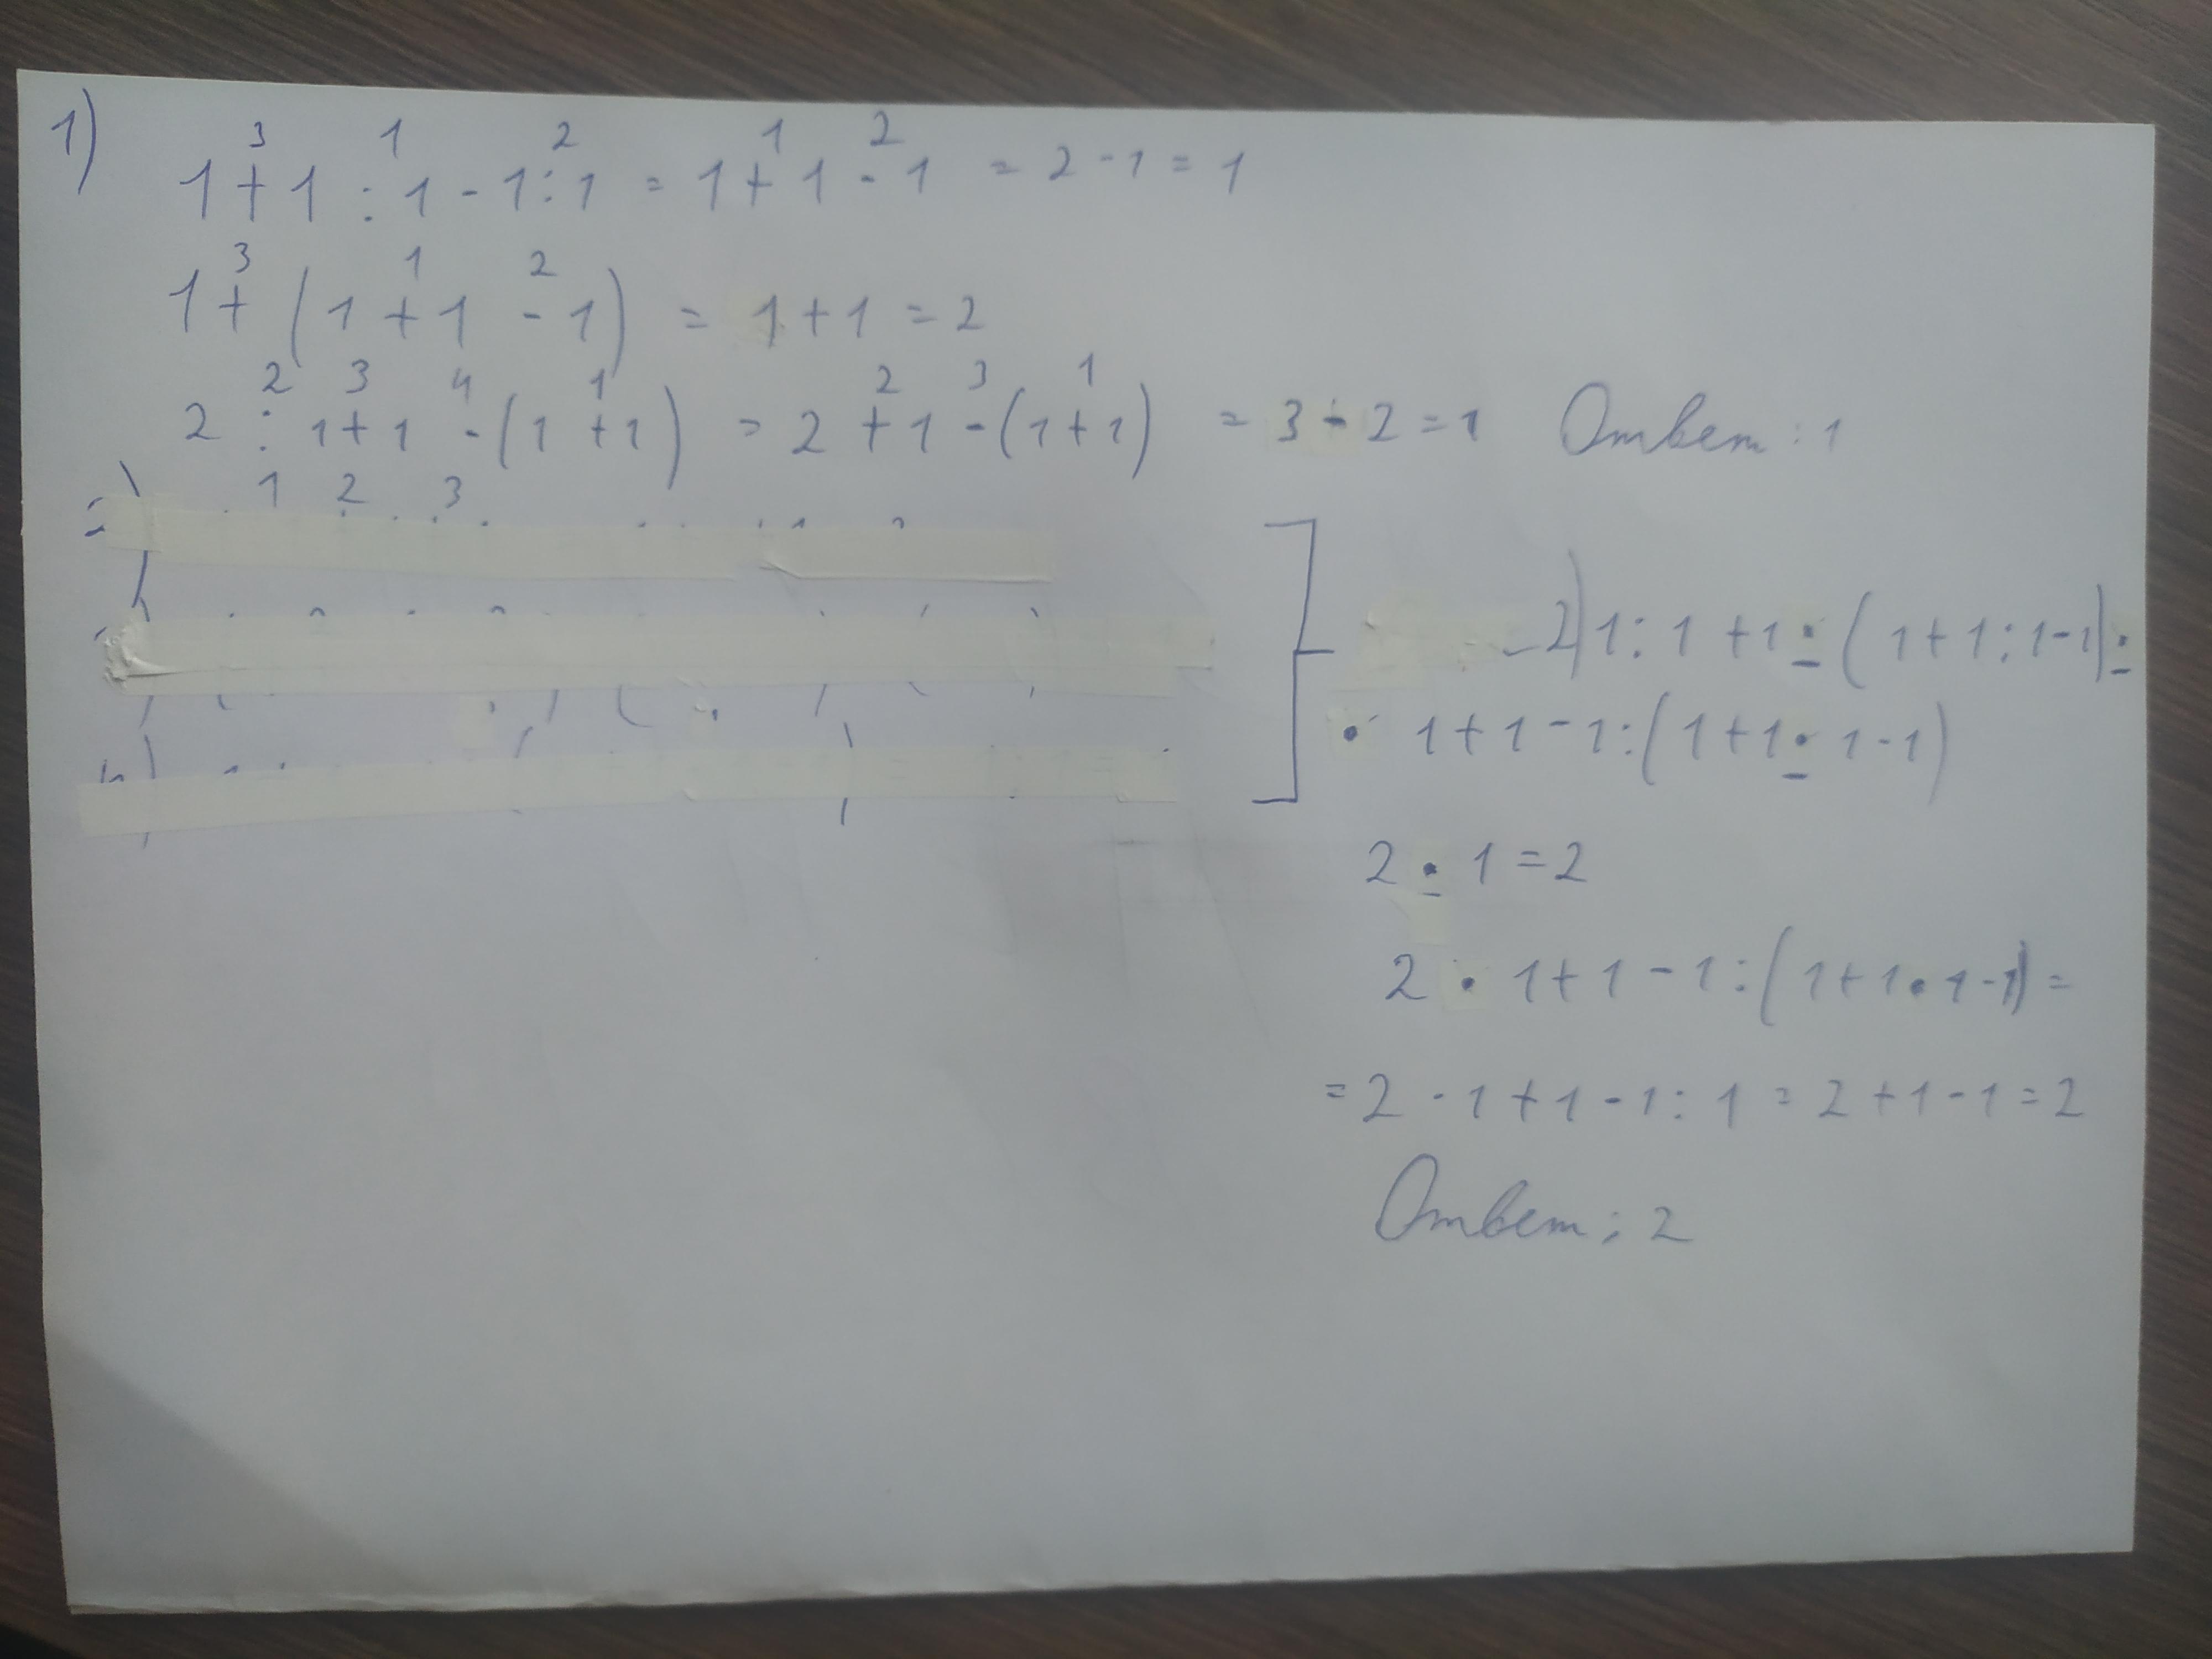 1)
3 1 2 1 2
1 + 1 : 1 - 1 : 1 = 1 + 1 - 1 = 2 - 1 = 1
3 1 2
1 + (1 + 1 - 1) = 1 + 1 = 2
2 3 4 1 2 3 1
2 : 1 + 1 - (1 + 1) = 2 + 1 - (1 + 1) = 3 - 2 = 1 Ответ: 1
1 2 3
2) 1 : 1 + 1 · (1 + 1 : 1 - 1) ·
· 1 + 1 - 1 : (1 + 1 · 1 - 1)
2 · 1 = 2
2 · 1 + 1 - 1 : (1 + 1 · 1 - 1) =
= 2 · 1 + 1 - 1 : 1 = 2 + 1 - 1 = 2
Ответ: 2